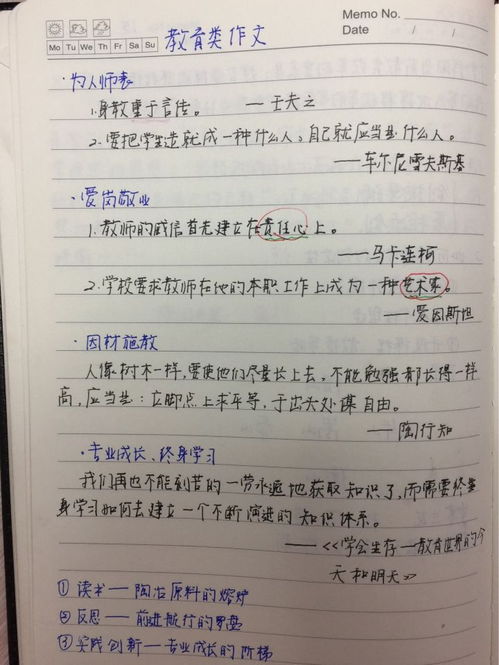 Memo No.
Mo Tu We Th Fr Sa Su
Date / /
教育类作文
·为人师表
1.身教重于言传。 ——王夫之
2.要把学生造就成一种什么人,自己就应当是什么人。
——车尔尼雪夫斯基
·爱岗敬业
1.教师的威信首先建立在责任心上。
——马卡连柯
2.学校要求教师在他的本职工作上成为一种艺术家。
——爱因斯坦
·因材施教
人像树木一样,要使他们尽量长上去,不能勉强都长得一样
高,应当是:立脚点上求平等,于出头处谋自由。
——陶行知
·专业成长、终身学习
我们再也不能刻苦的一劳永逸地获取知识了,而需要终
身学习如何去建立一个不断演进的知识体系。
——<<学会生存—教育世界的今
天和明天>>
①读书——陶冶原料的熔炉
②反思——前进航行的罗盘
③实践创新——专业成长的阶梯